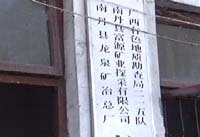 广西有色地质勘查局二一五队
南丹县富源矿业探采有限公司
南丹县龙泉矿冶总厂